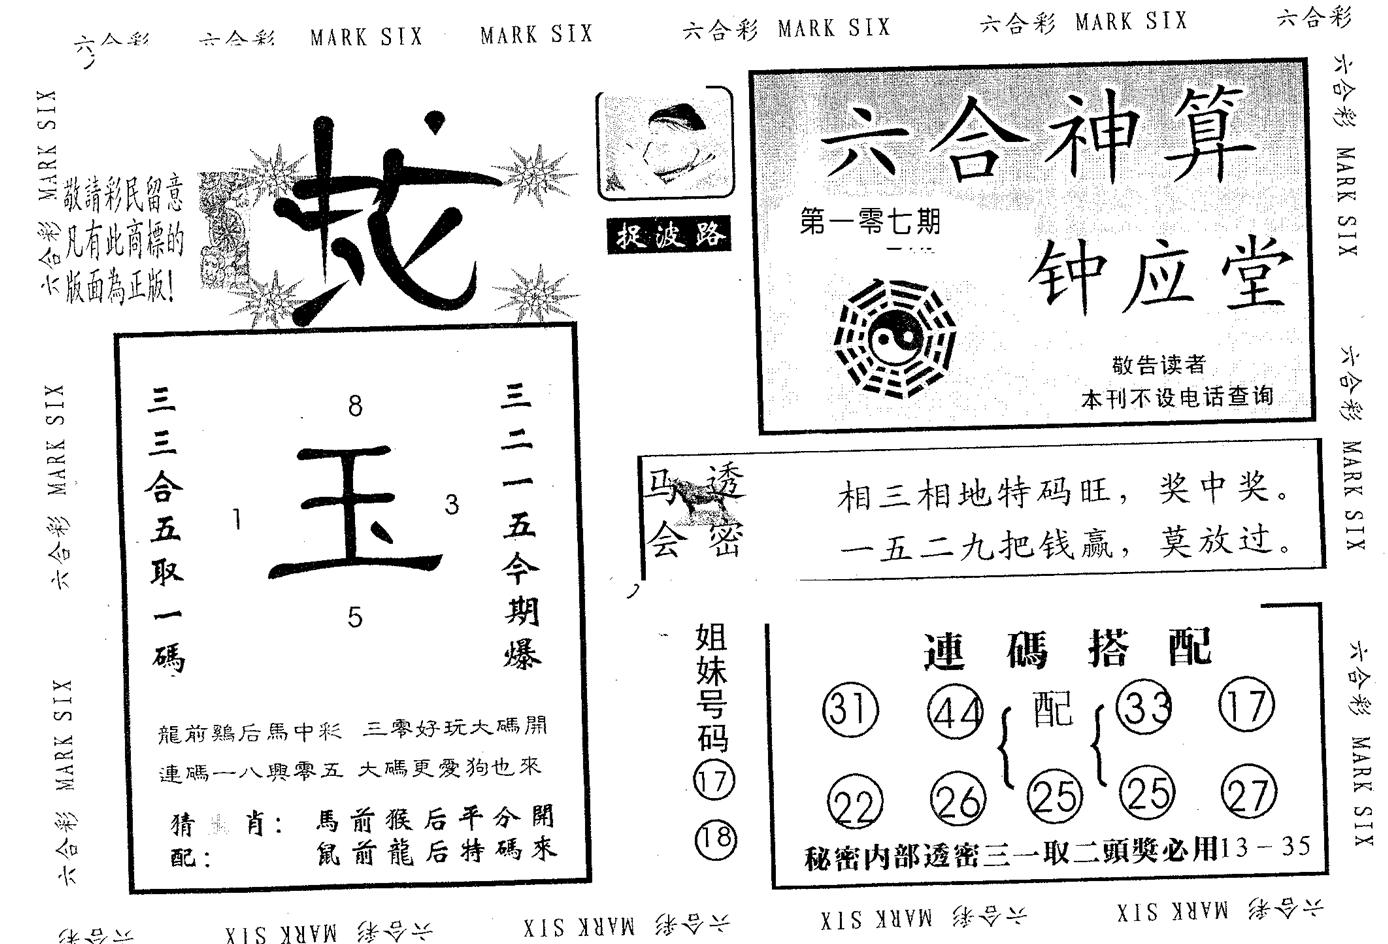 六合彩 六合彩 MARK SIX MARK SIX 六合彩 MARK SIX 六合彩 MARK SIX 六合彩
六合彩 MARK SIX
六合彩 MARK SIX
六合彩 MARK SIX
敬請彩民留意
凡有此商標的
版面為正版!
捉波路
六合神算
第一零七期
钟应堂
敬告读者
本刊不设电话查询
三三合五取一碼
8
1
玉
3
5
三二一五今期爆
龍前鷄后馬中彩 三零好玩大碼開
連碼一八興零五 大碼更愛狗也來
猜 肖: 馬前猴后平分開
配: 鼠前龍后特碼來
马会 透密
相三相地特码旺，奖中奖。
一五二九把钱赢，莫放过。
姐妹号码
17
18
連碼搭配
31 44 配 33 17
22 26 25 25 27
秘密内部透密三一取二頭獎必用13-35
六合彩 MARK SIX
六合彩 MARK SIX
六合彩 MARK SIX
六合彩 MARK SIX 六合彩 MARK SIX 六合彩 MARK SIX 六合彩 MARK SIX 六合彩